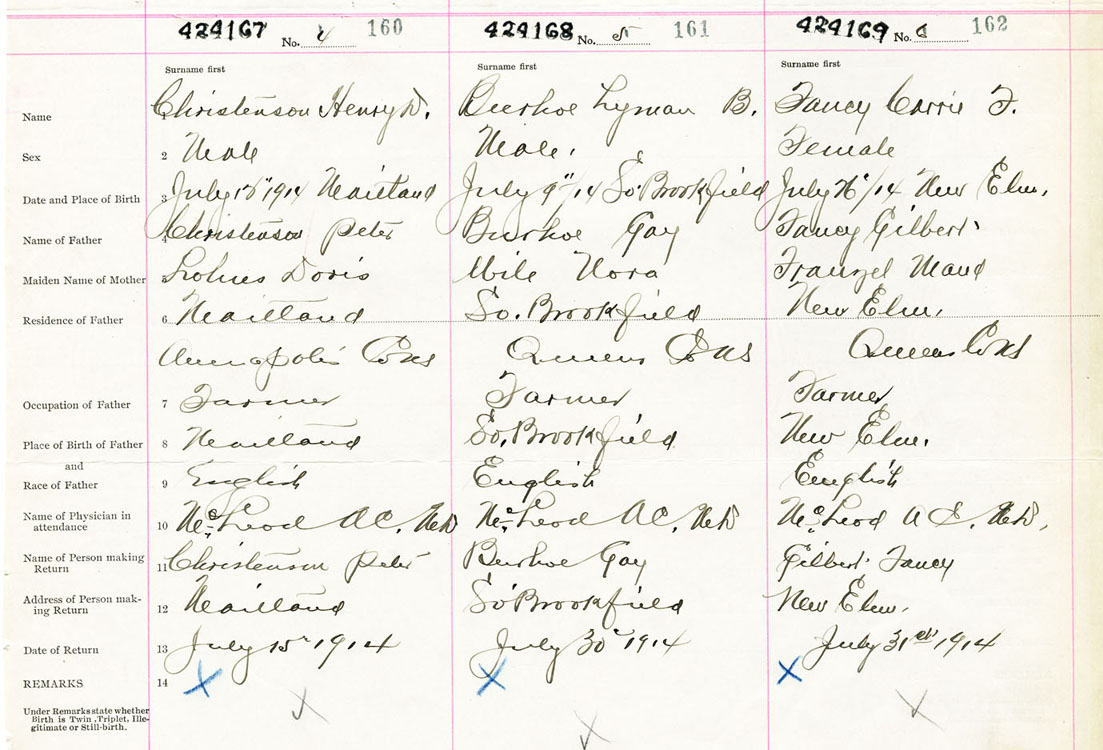 424167 No. 4 160 424168 No. 5 161 424169 No. 6 162
Surname first Surname first Surname first
Name 1 Christenson Henry D. Burhoe Lyman B. Fancy Carrie F.
Sex 2 Male Male. Female
Date and Place of Birth 3 July 1914 Maitland July 9"/14 So. Brookfield July 26"/14 New Elm.
Name of Father 4 Christenson Peter Burhoe Gay Fancy Gilbert
Maiden Name of Mother 5 Doris Wile Nora Maud
Residence of Father 6 Maitland So. Brookfield New Elm.
Annapolis Cons Queens Cons Queens Cons
Occupation of Father 7 Farmer Farmer Farmer
Place of Birth of Father 8 Maitland So. Brookfield New Elm.
and
Race of Father 9 English English English
Name of Physician in
attendance 10 McLeod A C. MD McLeod A C. MD McLeod A C. MD.
Name of Person making
Return 11 Christenson Peter Burhoe Gay Gilbert Fancy
Address of Person mak-
ing Return 12 Maitland So Brookfield New Elm.
Date of Return 13 July 15" 1914 July 30" 1914 July 31st 1914
REMARKS 14 X X X
Under Remarks state whether
Birth is Twin, Triplet, Ille-
gitimate or Still-birth.